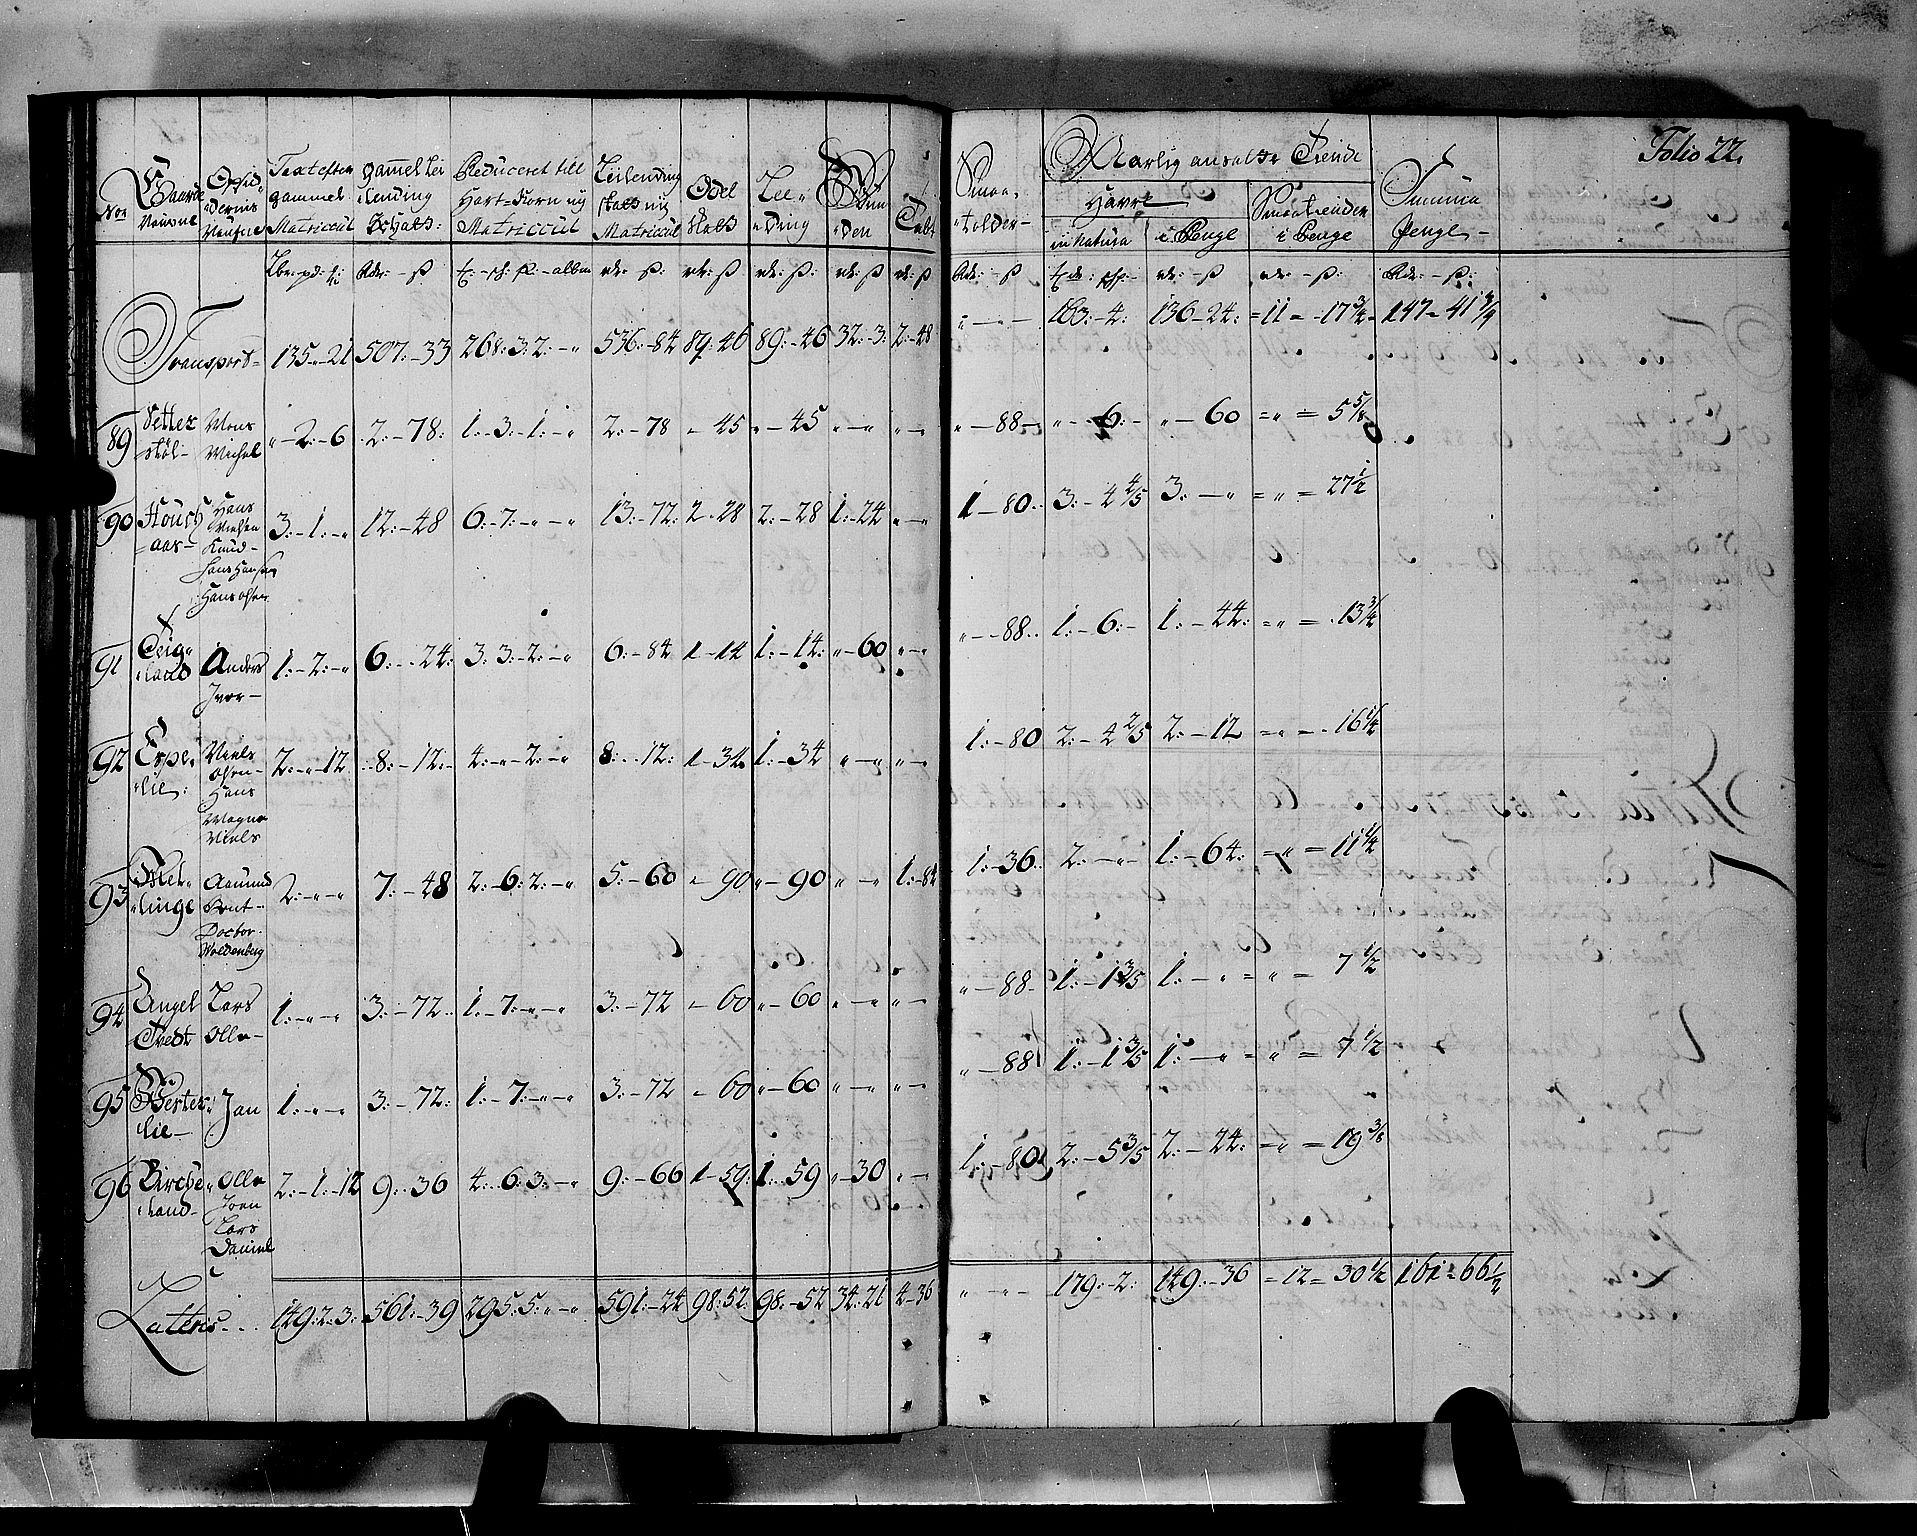 Folio 22.
No Gaarde Nafne Opsid dernis Nafne Taxt efter gammel Matriccul Gammel Lei lending Schatt: Reduceret till Hart-Korn ny Matriccul Leilending skatt ny Matricul Odel skatt Lee ding
Smaa tolder Aarlig ansatte Tiende Havre in Natura i Penge Smaatienden i Penge Summa Penge
Transport 135 - 21 507: - 33 268: 3: 2: - " 536: - 84 89: 46 89: - 46 32: - 3: 2: - 48 " - " - 163: - 4: 136 - 24: = 11 = - 17 3/4 147 = 41 3/4
89 Vetter støl - Mons Michel " - 2: - 6 2: - 78: 1: - 3: - 1: - " 2: - 78 " - 45 " - 45 " - " " - " " - 88 - " - 6: - " - 60 = " = 5 5/8
90 Housch aas - Hans Nielsen Knud - Hans Hansen Hans Olsen 3: - 1: - " 12: - 48 6: - 7: - " - " 13: - 72: 2 - 28 2: - 28 1: - 24 " - " 1 - 80: 3: - 4 4/5 3: - " = " = 27 1/2
91 Teig land Anders Iver - 1: - 2: - " 6: - 24: 3: 3: - 2: - " 6: - 84 1 - 14 1: - 14: " - 60 " - " " - 88: 1: - 6: - 1: - 44: = " = 13 3/4
92 Espe lie: Niels Olsen - Hans Magne Niels 2: - " - 12 8: - 12: - 4: - " - 2: - " 8: - 12: 1 - 34 1: - 34 " - " " - " 1: - 80 2: - 4 2/5 2: - 12 = " = 16 1/4
93 linge Aamund Bont - Doctor Woldenberg 2: - " - " 7: - 48 2: - 6: 2: - " 5: - 60 " - 90 " - 90 " - " 1: - 84 1: - 36: 2: - " - 1: - 64: = " = 11 1/4
94 Angel Tvedt Lars Olle - 1: - " - " 3: - 72 1: - 7: - " - " 3: - 72 " - 60 " - 60 " - " " - " " - 88 - 1: - 1 3/5 1: - " = " = 7 1/2
95 Røster lie - Jan 1: - " - " 3: - 72: 1: - 7: - " - " 3: - 72 " - 60 " - 60 " - " " - " " - 88 1: - 1 3/5 1: - " = " = 7 1/2
96 Birche land - Olle Joen Lars Daniel 2: - 1: - 12 9: - 36 4: - 6: 3: - " 9: - 66 1 - 59: 1: - 59 " - 30 " - " 1: - 80 2: - 5 3/5 2: - 24: = " = 19 3/8
Lateris - 149: 2: - 3: 561: - 39 295: 5: " - " 591: - 24 98: 52: 98: - 52 34: 21 4: - 36 " - " - 179: - 2: 149: - 36 = 12 = 30 1/2 161 = 66 1/2